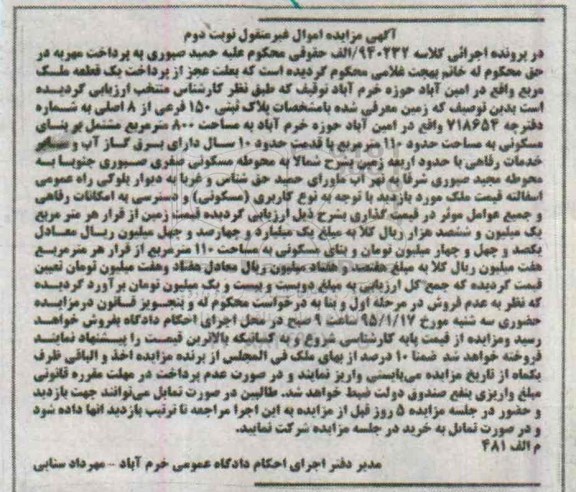 آگهی مزایده اموال غیرمنقول نوبت دوم
در پرونده اجرائی کلاسه ۹۴۰۲۳۲/الف حقوقی محکوم علیه حمید صبوری به پرداخت مهریه در
حق محکوم له خانم بهجت غلامی محکوم گردیده است که بعلت عجز از پرداخت یک قطعه ملک
مربع واقع در امین آباد حوزه خرم آباد توقیف که طبق نظر کارشناس منتخب ارزیابی گردیده
است بدین توصیف که زمین معرفی شده بامشخصات پلاک ثبتی ۱۵۰ فرعی از ۸ اصلی به شماره
دفترچه ۷۱۸۶۵۴ واقع در امین آباد حوزه خرم آباد به مساحت ۸۰۰ مترمربع مشتمل بر بنای
مسکونی به مساحت حدود ۱۱۰ مترمربع با قدمت حدود ۱۰ سال دارای برق گاز آب و سایر
خدمات رفاهی با حدود اربعه زمین بشرح شمالا به محوطه مسکونی صفری صبوری جنوبا به
محوطه مجید صبوری شرقا به نهر آب ماورای حمید حق شناس و غربا به دیوار بلوکی راه عمومی
اسفالته قیمت ملک مورد بازدید با توجه به نوع کاربری (مسکونی) و دسترسی به امکانات رفاهی
و جمیع عوامل موثر در قیمت گذاری بشرح ذیل ارزیابی گردیده قیمت زمین از قرار هر متر مربع
یک میلیون و ششصد هزار ریال کلا به مبلغ یک میلیارد و چهارصد و چهل میلیون ریال معادل
یکصد و چهل و چهار میلیون تومان و بنای مسکونی به مساحت ۱۱۰ مترمربع از قرار هر مترمربع
هفت میلیون ریال کلا به مبلغ هفتصد و هفتاد میلیون ریال معادل هفتاد وهفت میلیون تومان تعیین
قیمت گردیده که جمع کل ارزیابی به مبلغ دویست و بیست و یک میلیون تومان برآورد گردیده
که نظر به عدم فروش در مرحله اول و بنا به درخواست محکوم له و بتجویز قانون درمزایده
حضوری سه شنبه مورخ ۹۵/۱/۱۷ ساعت ۹ صبح در محل اجرای احکام دادگاه بفروش خواهد
رسید ومزایده از قیمت پایه کارشناسی شروع و به کسانیکه بالاترین قیمت را پیشنهاد نمایند
فروخته خواهد شد ضمنا ۱۰ درصد از بهای ملک فی المجلس از برنده مزایده اخذ و الباقی ظرف
یکماه از تاریخ مزایده می‌بایستی واریز نمایند و در صورت عدم پرداخت در مهلت مقرره قانونی
مبلغ واریزی بنفع صندوق دولت ضبط خواهد شد. طالبین در صورت تمایل می‌توانند جهت بازدید
و حضور در جلسه مزایده ۵ روز قبل از مزایده به این اجرا مراجعه تا ترتیب بازدید انها داده شود
و در صورت تمایل به خرید در جلسه مزایده شرکت نمایید.
م الف ۴۸۱
مدیر دفتر اجرای احکام دادگاه عمومی خرم آباد - مهرداد سنایی